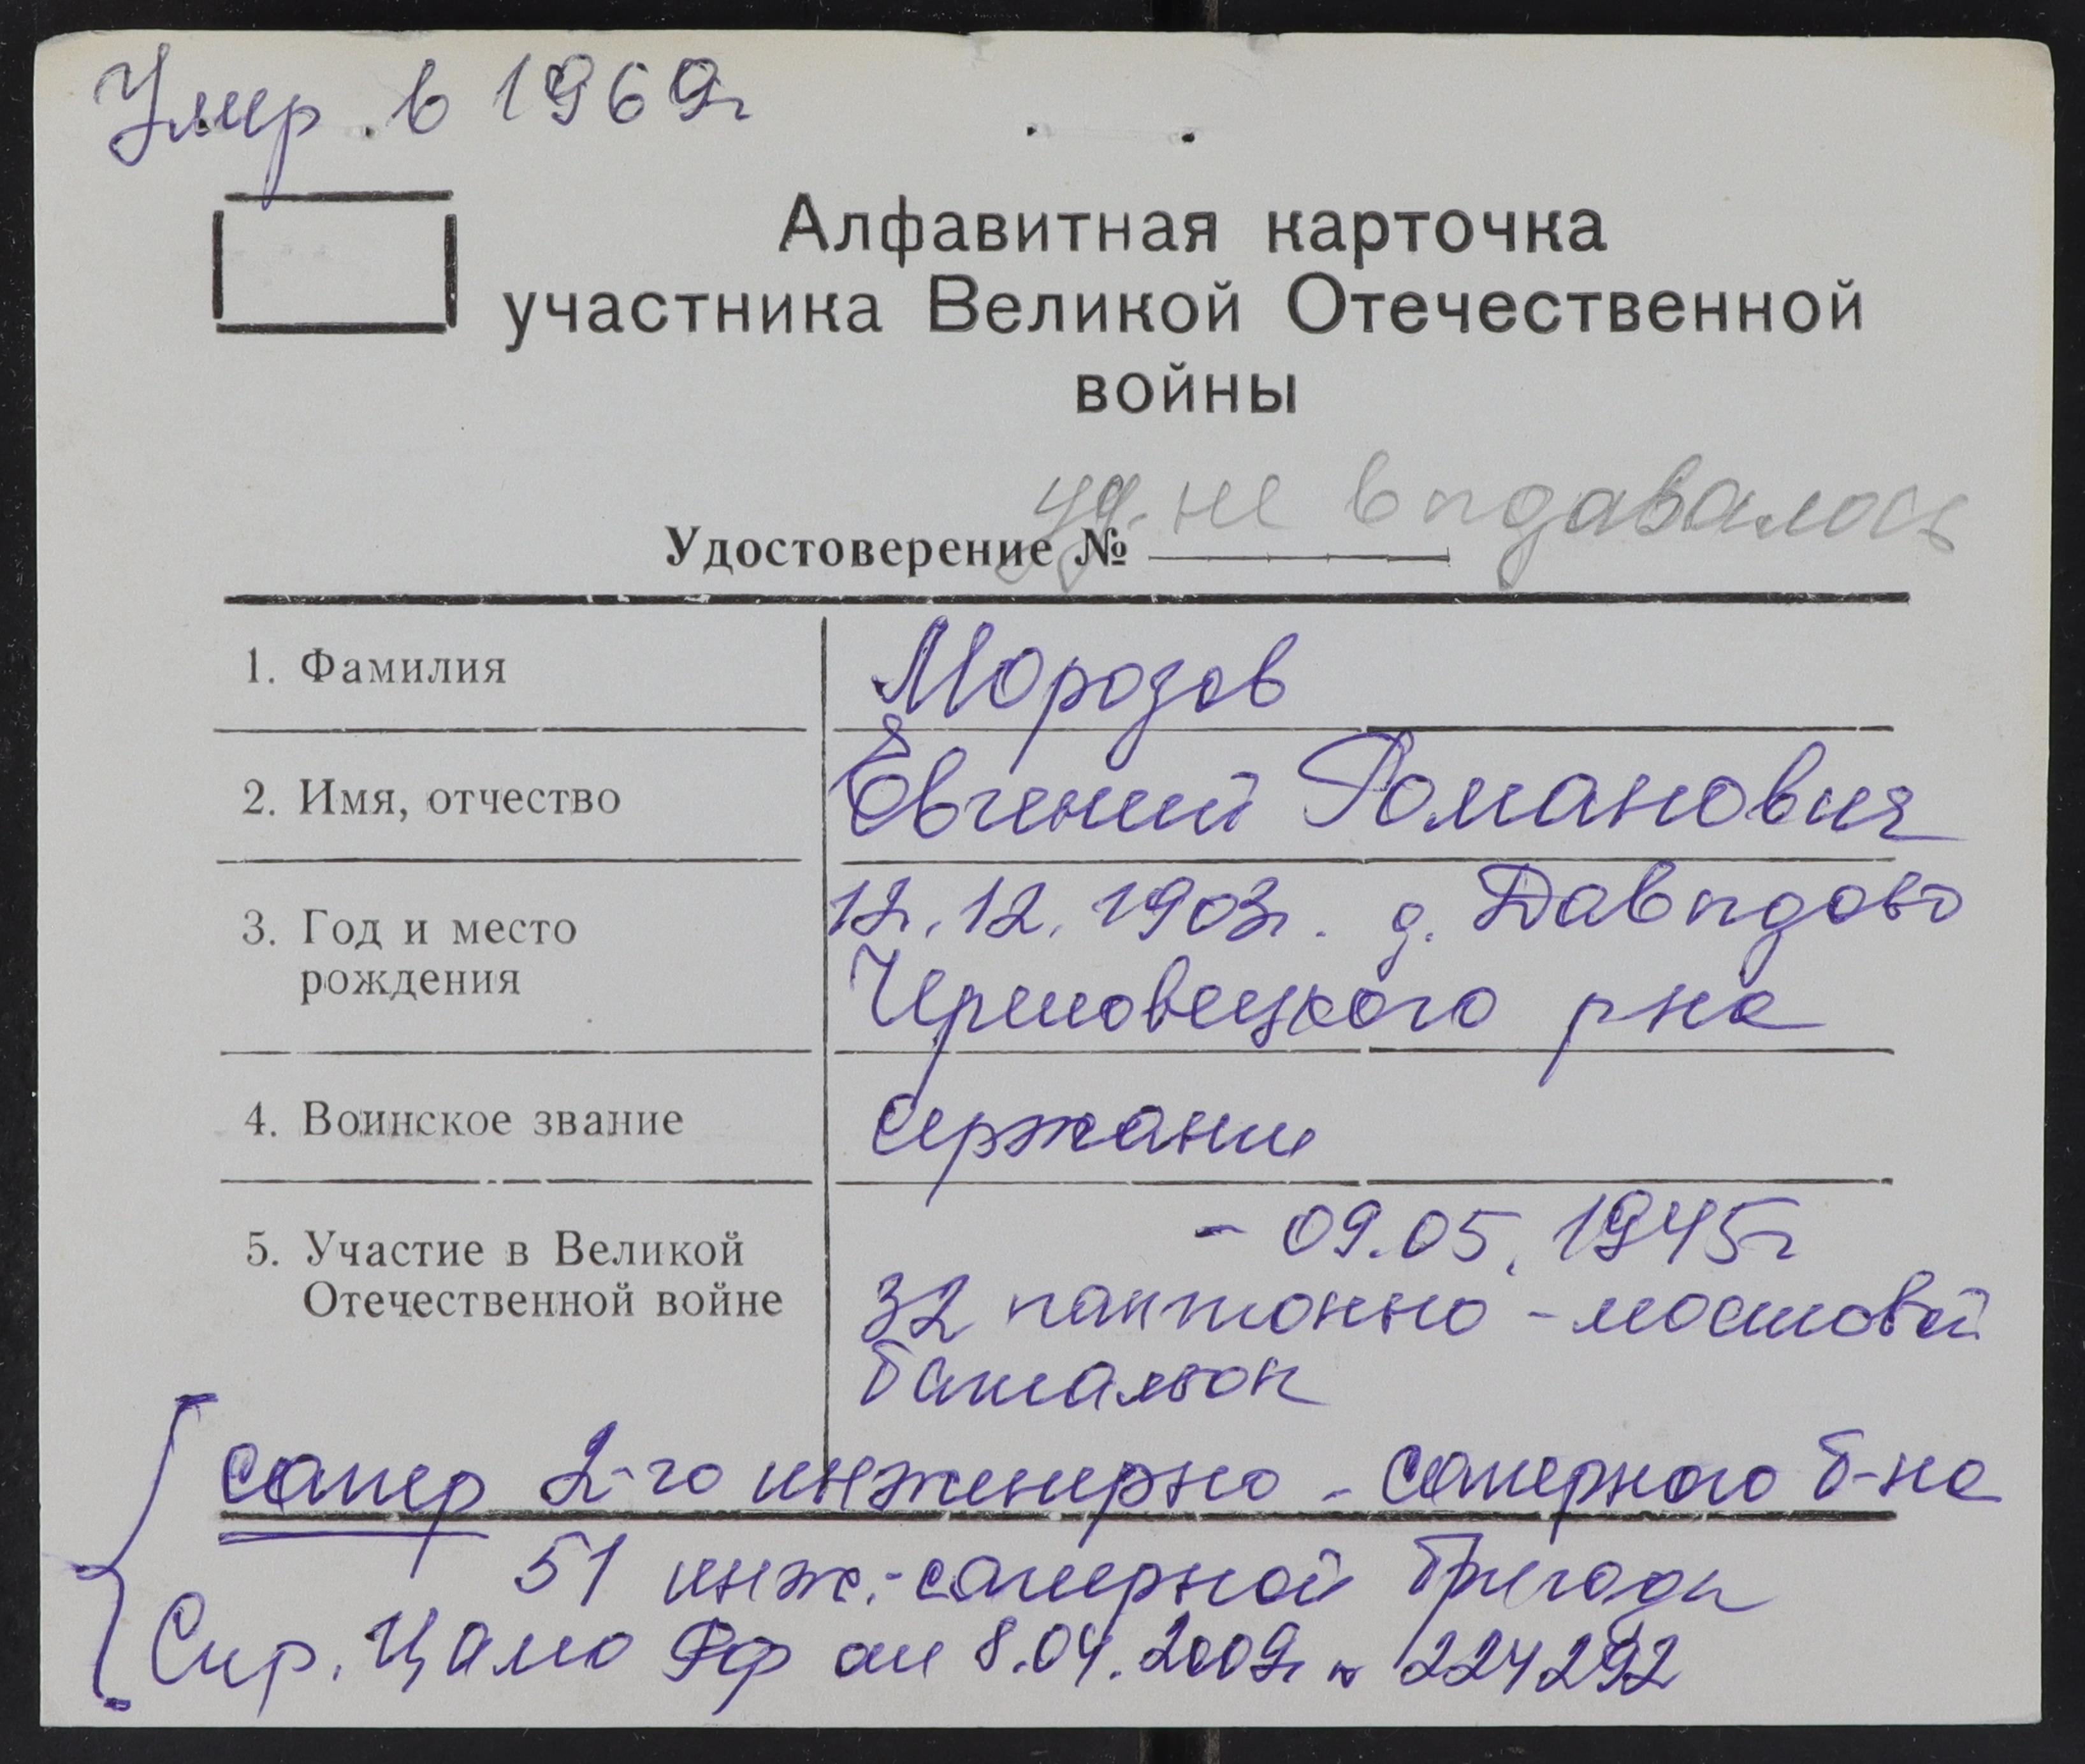 Умер в 1969г
Алфавитная карточка
участника Великой Отечественной
войны
уд. не выдавалось
Удостоверение №
1. Фамилия
Морозов
2. Имя, отчество
Евгений Романович
3. Год и место
рождения
12.12.1903г. д. Давыдово
Череповецкого р-на
4. Воинское звание
сержант
5. Участие в Великой
Отечественной войне
- 09.05.1945г
32 понтонно-мостовой
батальон
сапер 2-го инженерно-саперного б-на
51 инж.-саперной бригады
Спр. ЦАМО РФ от 8.04.2009г № 224292